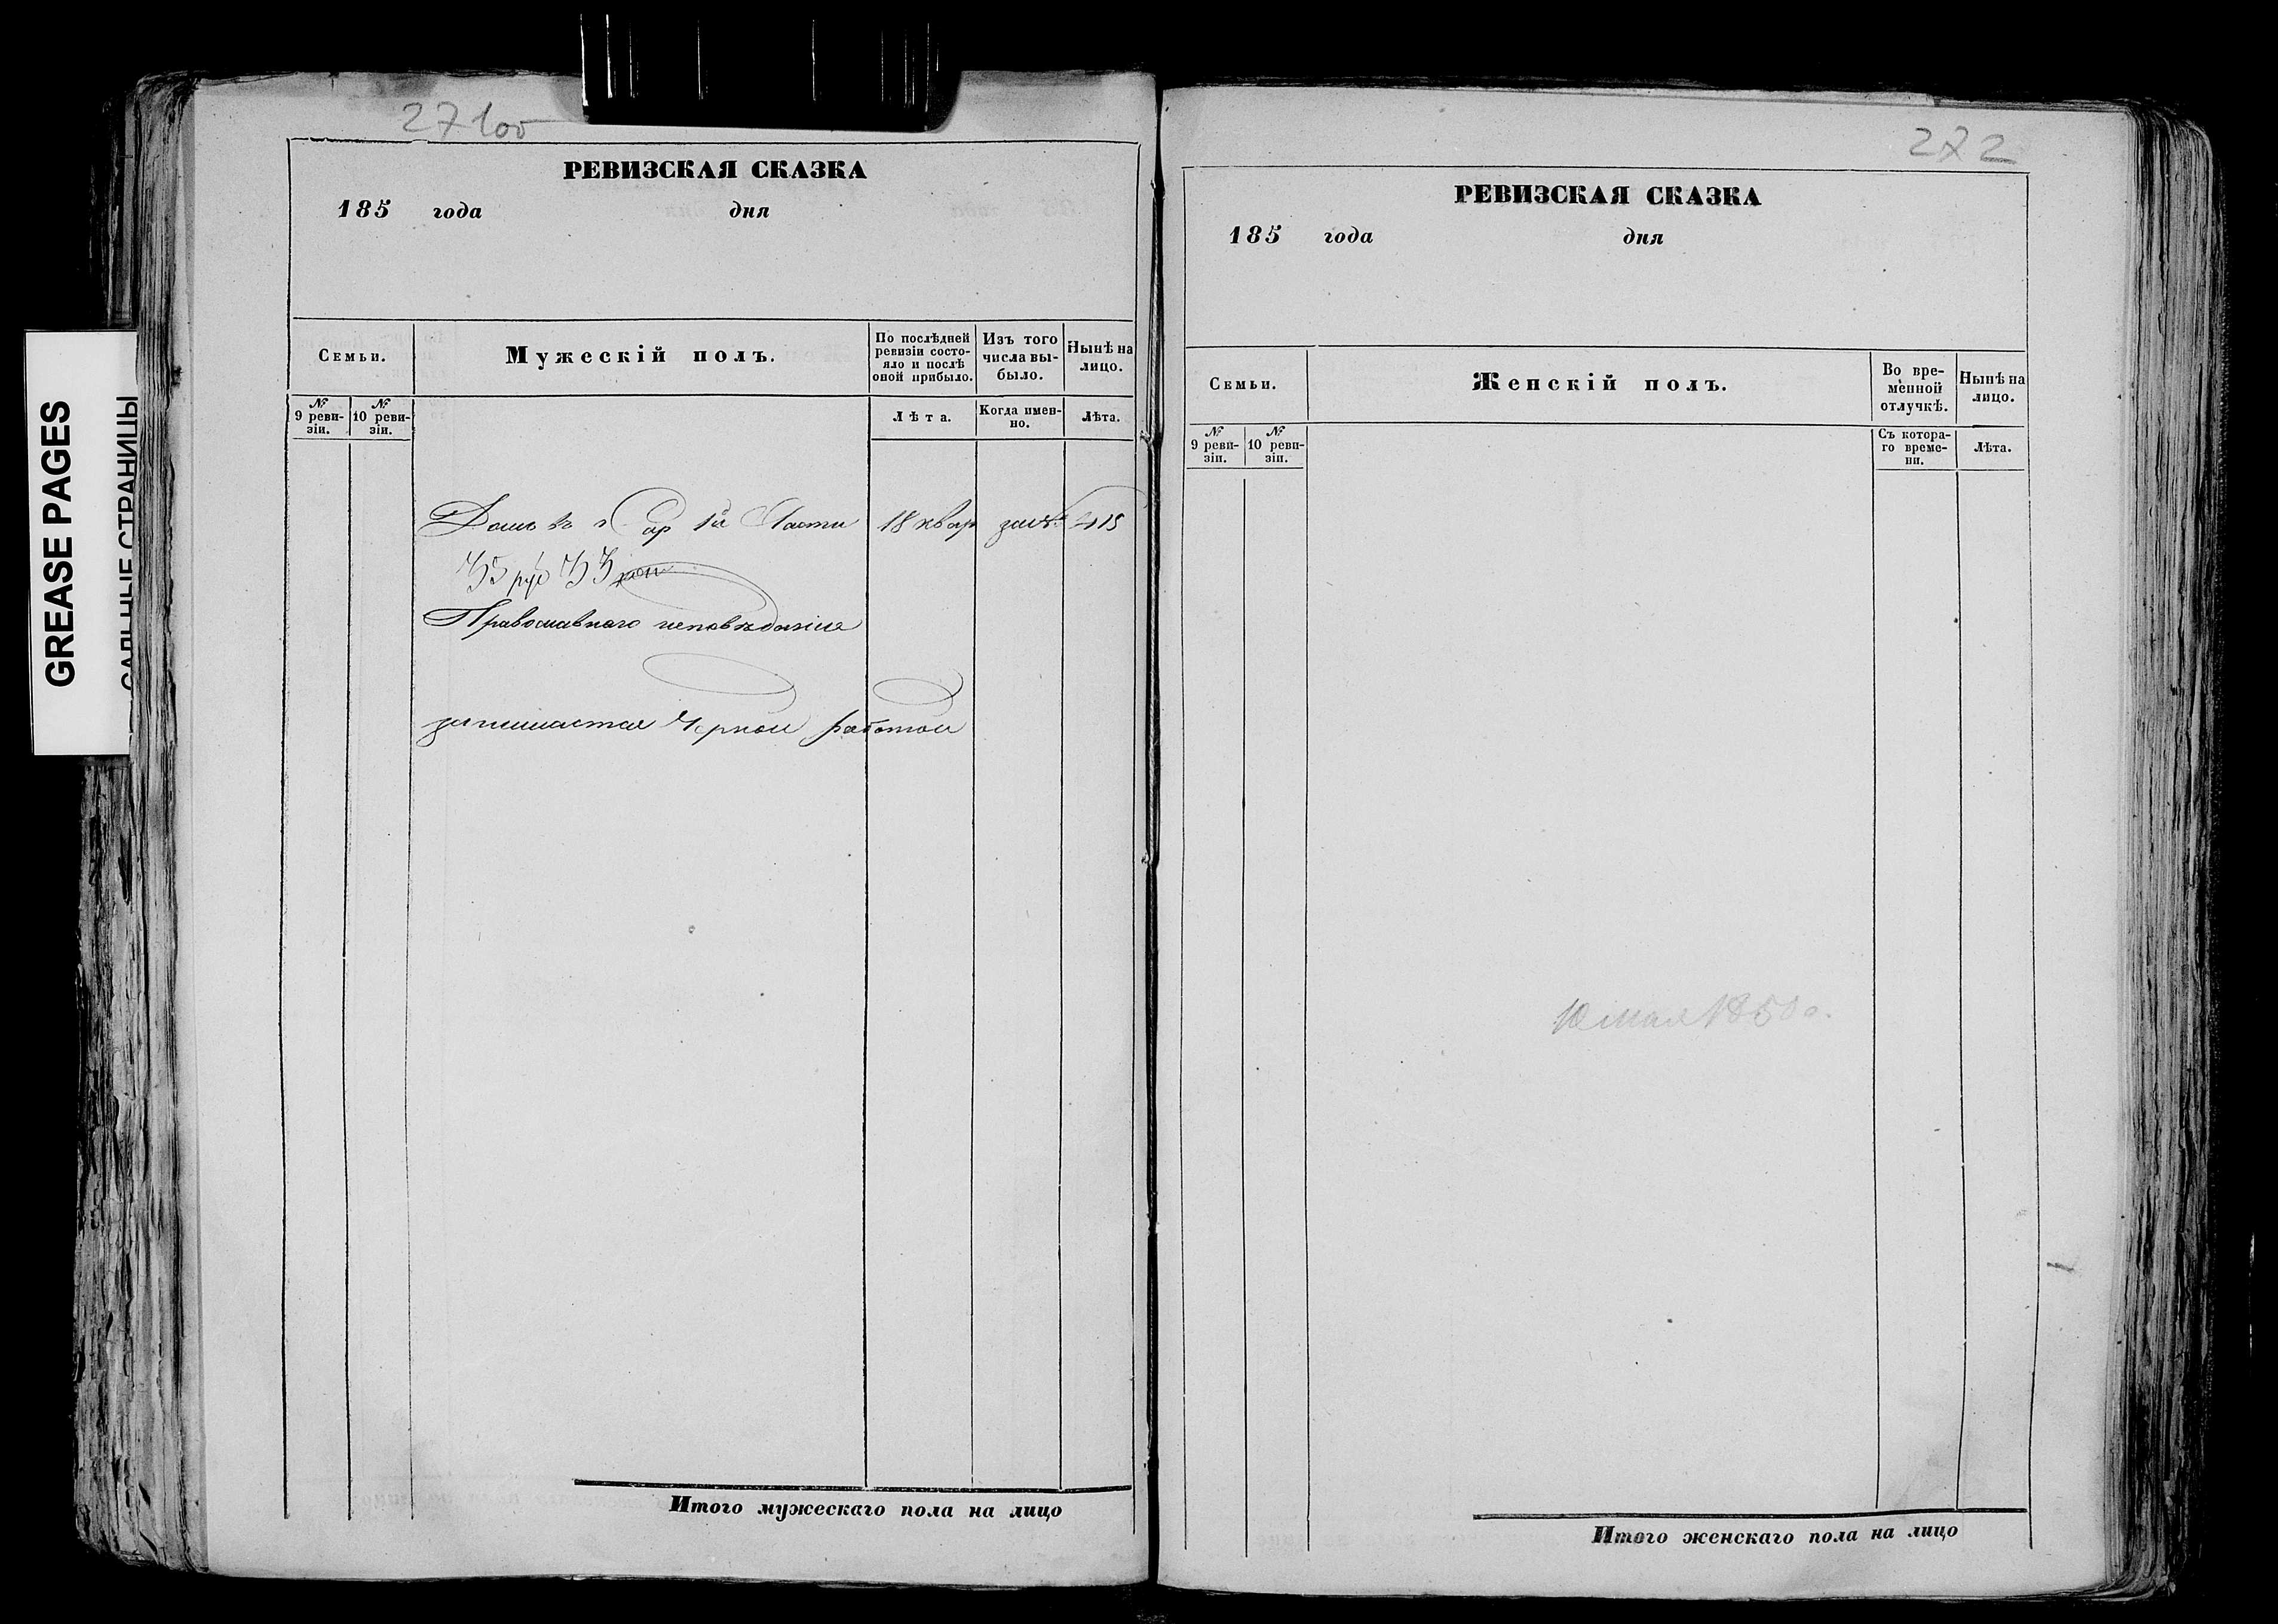 GREASE PAGES
САЛЬНЫЕ СТРАНИЦЫ
271об
РЕВИЗСКАЯ СКАЗКА
185 года дня
Семьи.
Мужескій полъ.
По послѣдней ревизіи состо-
яло и послѣ
оной прибыло.
Изъ того
числа вы-
было.
Нынѣ на
лицо.
№
9 реви-
зіи.
№
10 реви-
зіи.
Лѣта.
Когда имен-
но.
Лѣта.
Домъ въ г Сар 1й Части 18 квар
75 руб
Православнаго исповѣданія
занимается Черной работой
Итого мужескаго пола на лицо
272
РЕВИЗСКАЯ СКАЗКА
185 года дня
Семьи.
Женскій полъ.
Во вре-
менной
отлучкѣ.
Нынѣ на
лицо.
№
9 реви-
зіи.
№
10 реви-
зіи.
Съ котора-
го време-
ни.
Лѣта.
10 мая 1850 г.
Итого женскаго пола на лицо